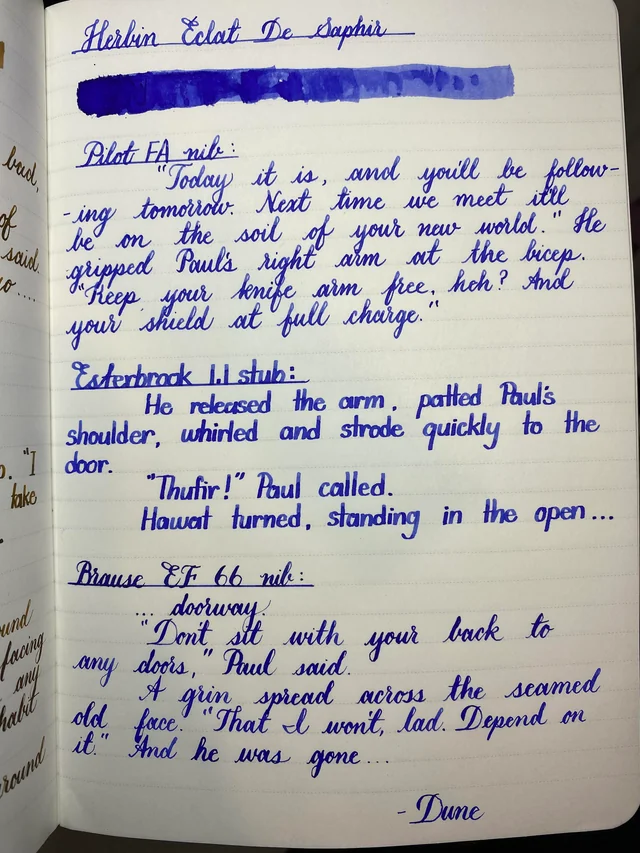 Herbin Eclat De Saphir
Pilot FA nib:
"Today it is, and you'll be follow-
-ing tomorrow. Next time we meet it'll
be on the soil of your new world." He
gripped Paul's right arm at the bicep.
"Keep your knife arm free, heh? And
your shield at full charge."
Esterbrook 1.1 stub:
He released the arm, patted Paul's
shoulder, whirled and strode quickly to the
door.
"Thufir!" Paul called.
Hawat turned, standing in the open...
Brause EF 66 nib:
... doorway.
"Don't sit with your back to
any doors," Paul said.
A grin spread across the seamed
old face. "That I won't, lad. Depend on
it." And he was gone...
- Dune
bad,
of
said.
"I
take
facing
any
habit